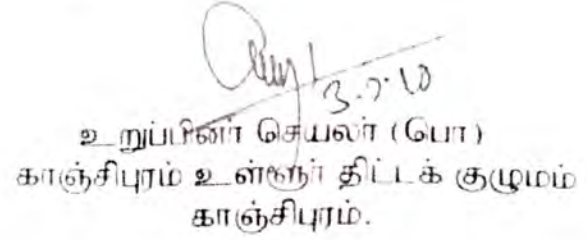 3.7.10
உறுப்பினர் செயலர் (பொ)
காஞ்சிபுரம் உள்ளூர் திட்டக் குழுமம்
காஞ்சிபுரம்.